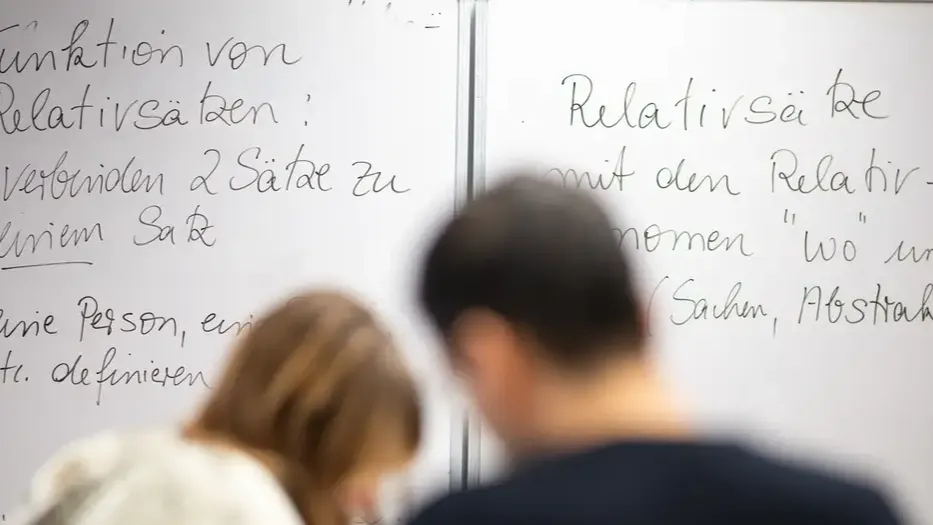 Funktion von
Relativsätzen:
verbinden 2 Sätze zu
einem Satz
eine Person, ein
etc. definieren
Relativsätze
mit den Relativ-
nomen "wo" un
(Sachen, Abstrak